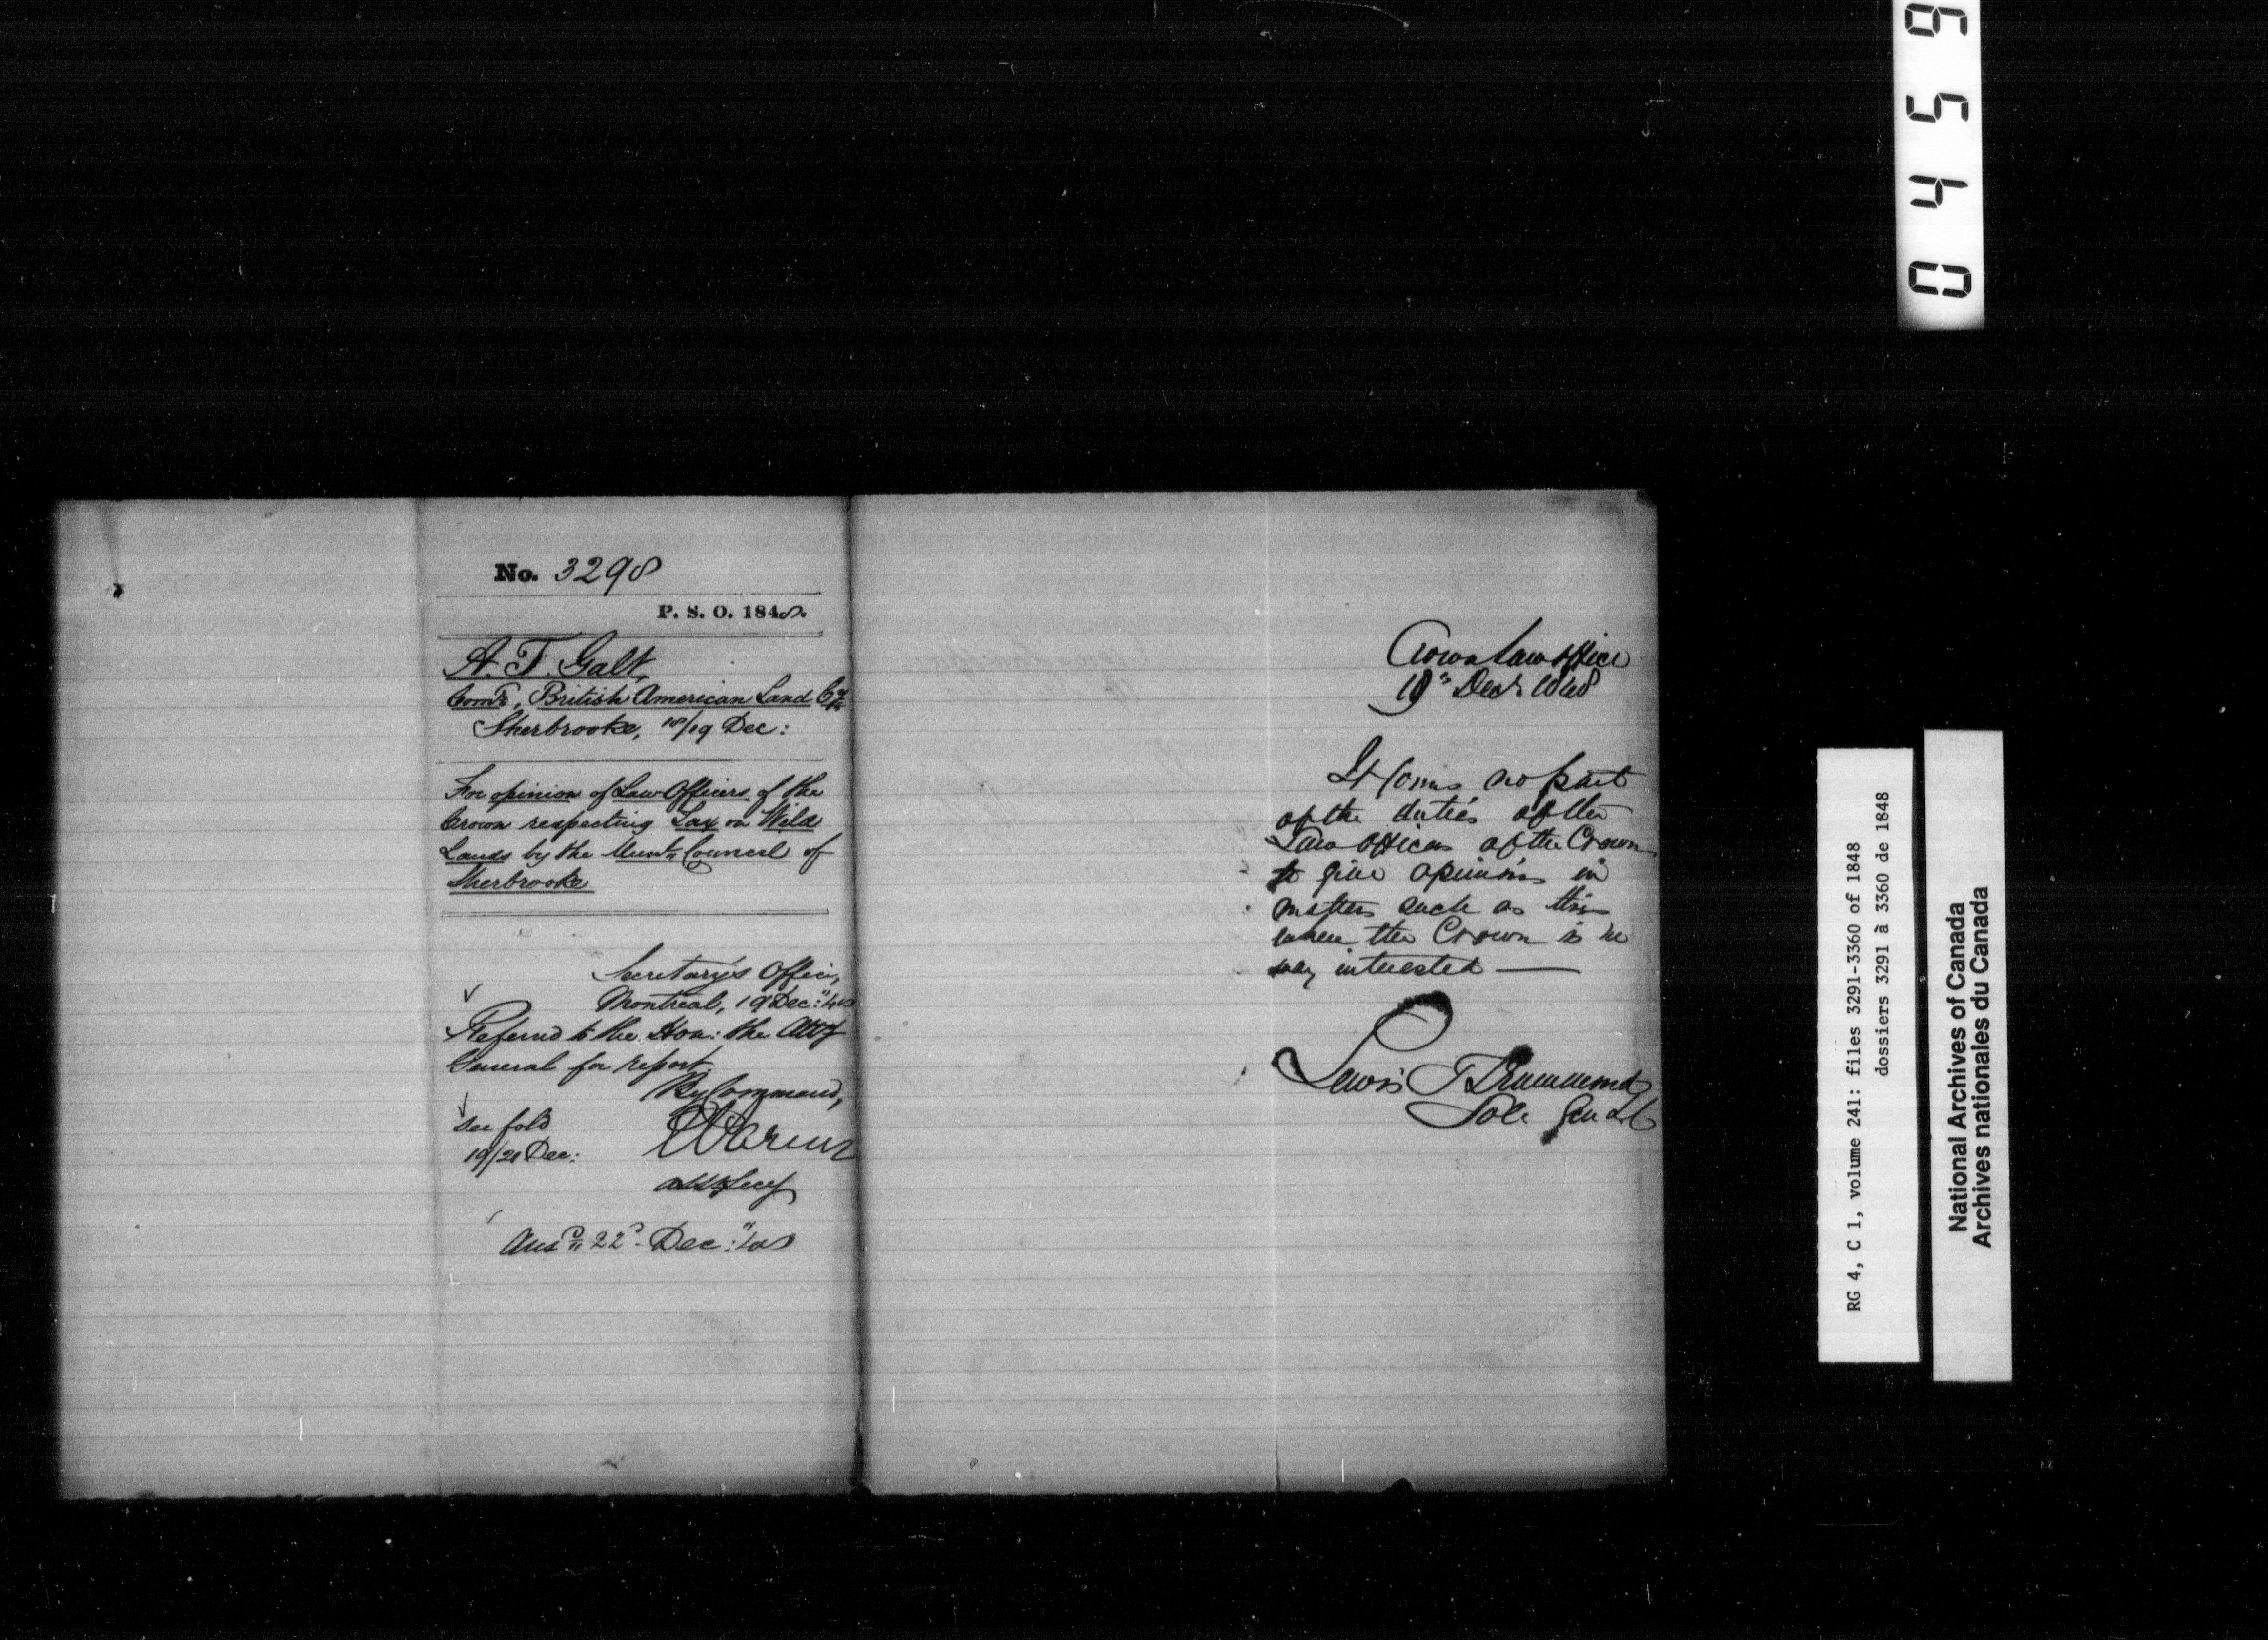 No. 3298
P. S. O. 1848.
A. T. Galt,
Comr., British American Land Co.
Sherbrooke, 18/19 Dec:
For opinion of Law Officers of the
Crown respecting Tax on Wild
Lands by the Munl. Council of
Sherbrooke
Secretary's Office,
Montreal, 19 Dec: 48
Referred to the Hon: the Atty
General for report.
By Command,
See fold
19/21 Dec:
Asst Secy
Ansd 22d Dec: 48
Crown Law Office
19th Decr 1848
It forms no part
of the duties of the
Law Officers of the Crown
to give opinions in
matters such as this
where the Crown is no
way interested —
Lewis T Drummond
Solr Genl L C
0459
RG 4, C 1, volume 241: files 3291-3360 of 1848
dossiers 3291 à 3360 de 1848
National Archives of Canada
Archives nationales du Canada